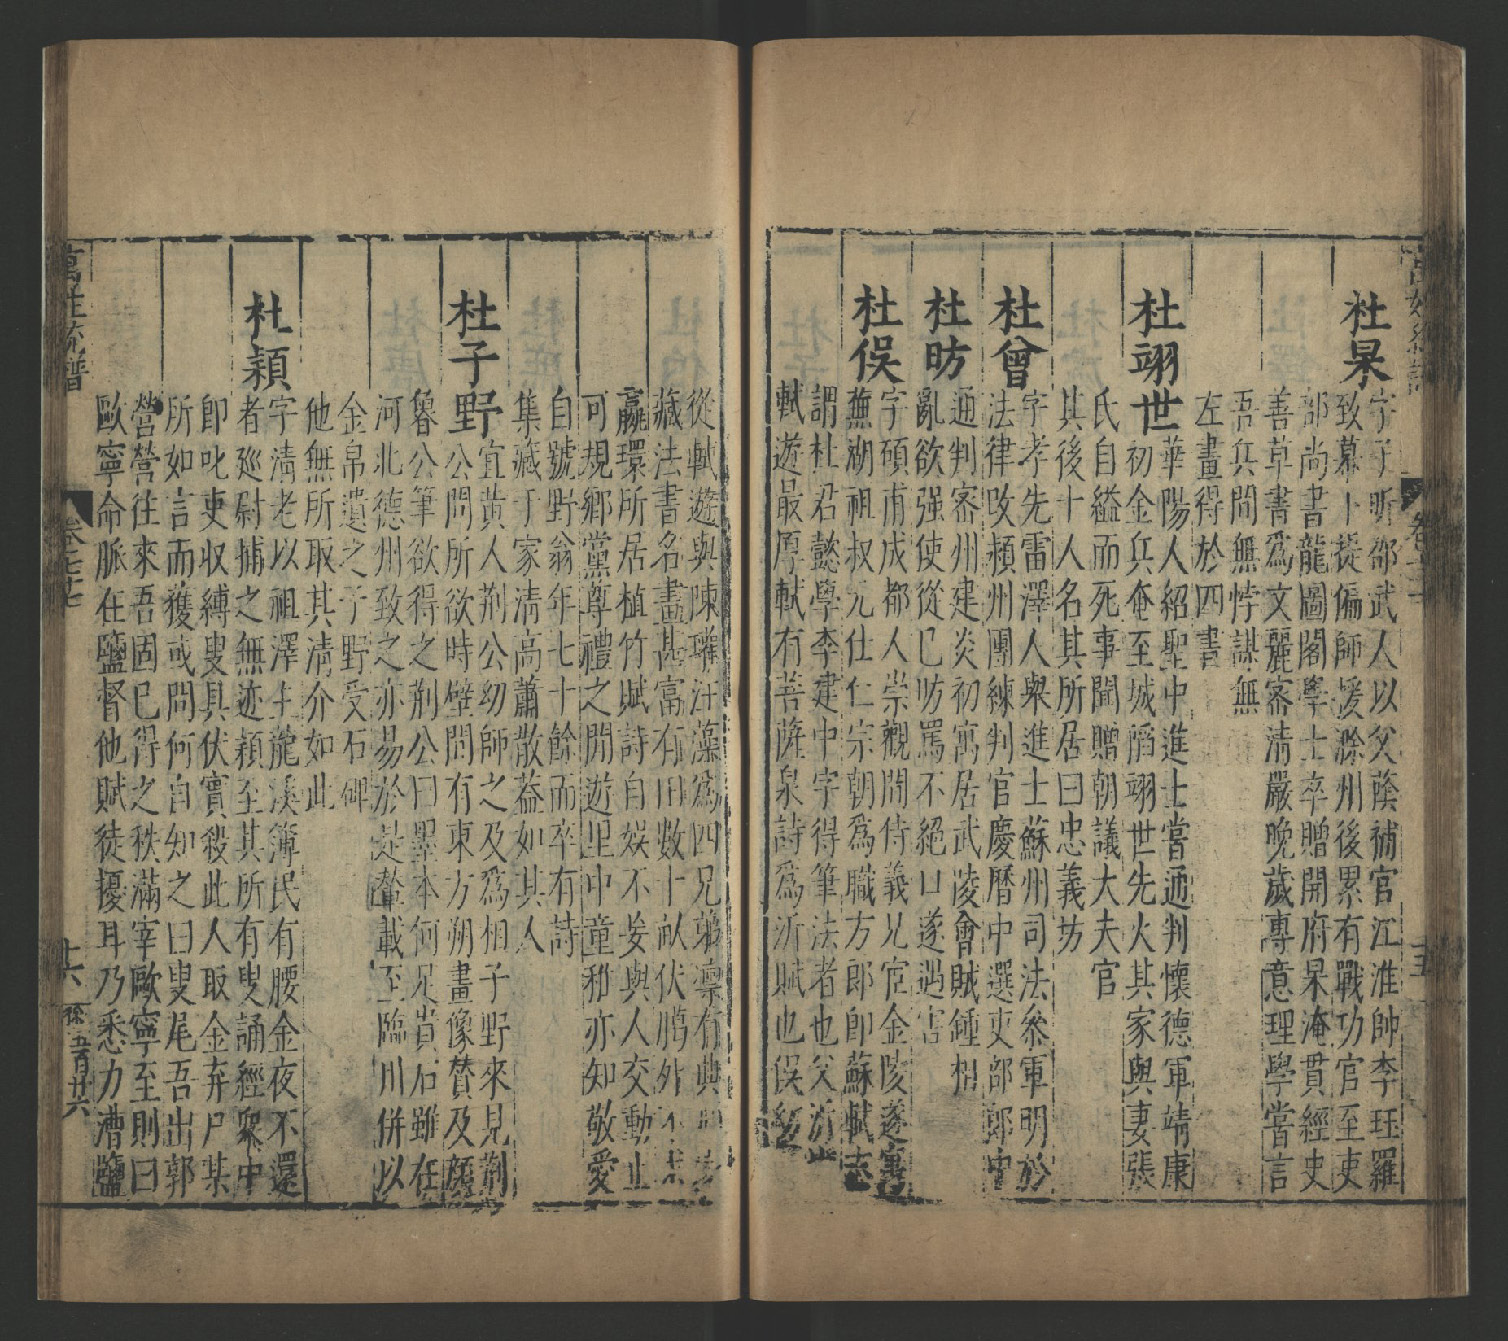 杜杲字子昕邵武人以父蔭補官江淮帥李珏羅
致幕下從偏師援滁州後累有戰功官至吏
部尚書龍圖閣學士卒贈開府杲淹貫經史
善草書爲文麗密清嚴晚歲專意理學嘗言
吾兵間無悖謀無
左畫得於四書
杜翊世華陽人紹聖中進士嘗通判懷德軍靖康
初金兵奄至城陷翊世先火其家與妻張
氏自縊而死事聞贈朝議大夫官
其後十人名其所居曰忠義坊
杜曾字孝先雷澤人舉進士蘇州司法叅軍明於
法律改潁州團練判官慶曆中選吏部郎中
杜昉通判密州建炎初寓居武凌會賊鍾相
亂欲强使從巳昉罵不絕口遂遇害
杜俁字碩甫成都人崇觀間侍義兄宦金陵遂寓
蕪湖祖叔元仕仁宗朝爲職方郎即蘇軾志
謂杜君懿學李建中字得筆法者也父沂
軾遊最厚軾有菩薩泉詩爲沂賦也俁
從軾遊與陳瓘汪藻爲四兄弟凛有典
藏法書名畫甚富有田數十畝伏臘外不求
贏環所居植竹賦詩自娯不妄與人交動止
可規鄉黨尊禮之閒遊里中童稚亦知敬愛
自號野翁年七十餘而卒有詩
集藏于家清高蕭散葢如其人
杜子野宜黃人荆公幼師之及爲相子野來見荆
公問所欲時壁間有東方朔畫像贊及顔
魯公筆欲得之荆公曰墨本何足貴石雖在
河北德州致之亦易於是輦載至臨川併以
金帛遺之子野受石碑
他無所取其清介如此
杜穎字清老以祖澤主龍溪簿民有腰金夜不還
者廵尉捕之無迹穎至其所有叟誦經衆中
即叱吏収縛叟具伏實殺此人取金弃尸某
所如言而獲或問何自知之曰叟尾吾出郭
營營往來吾固巳得之秩滿宰歐寧至則曰
歐寧命脈在鹽督他賦徒擾耳乃悉力漕鹽
萬姓統譜
卷七十七
十六
五百廿六